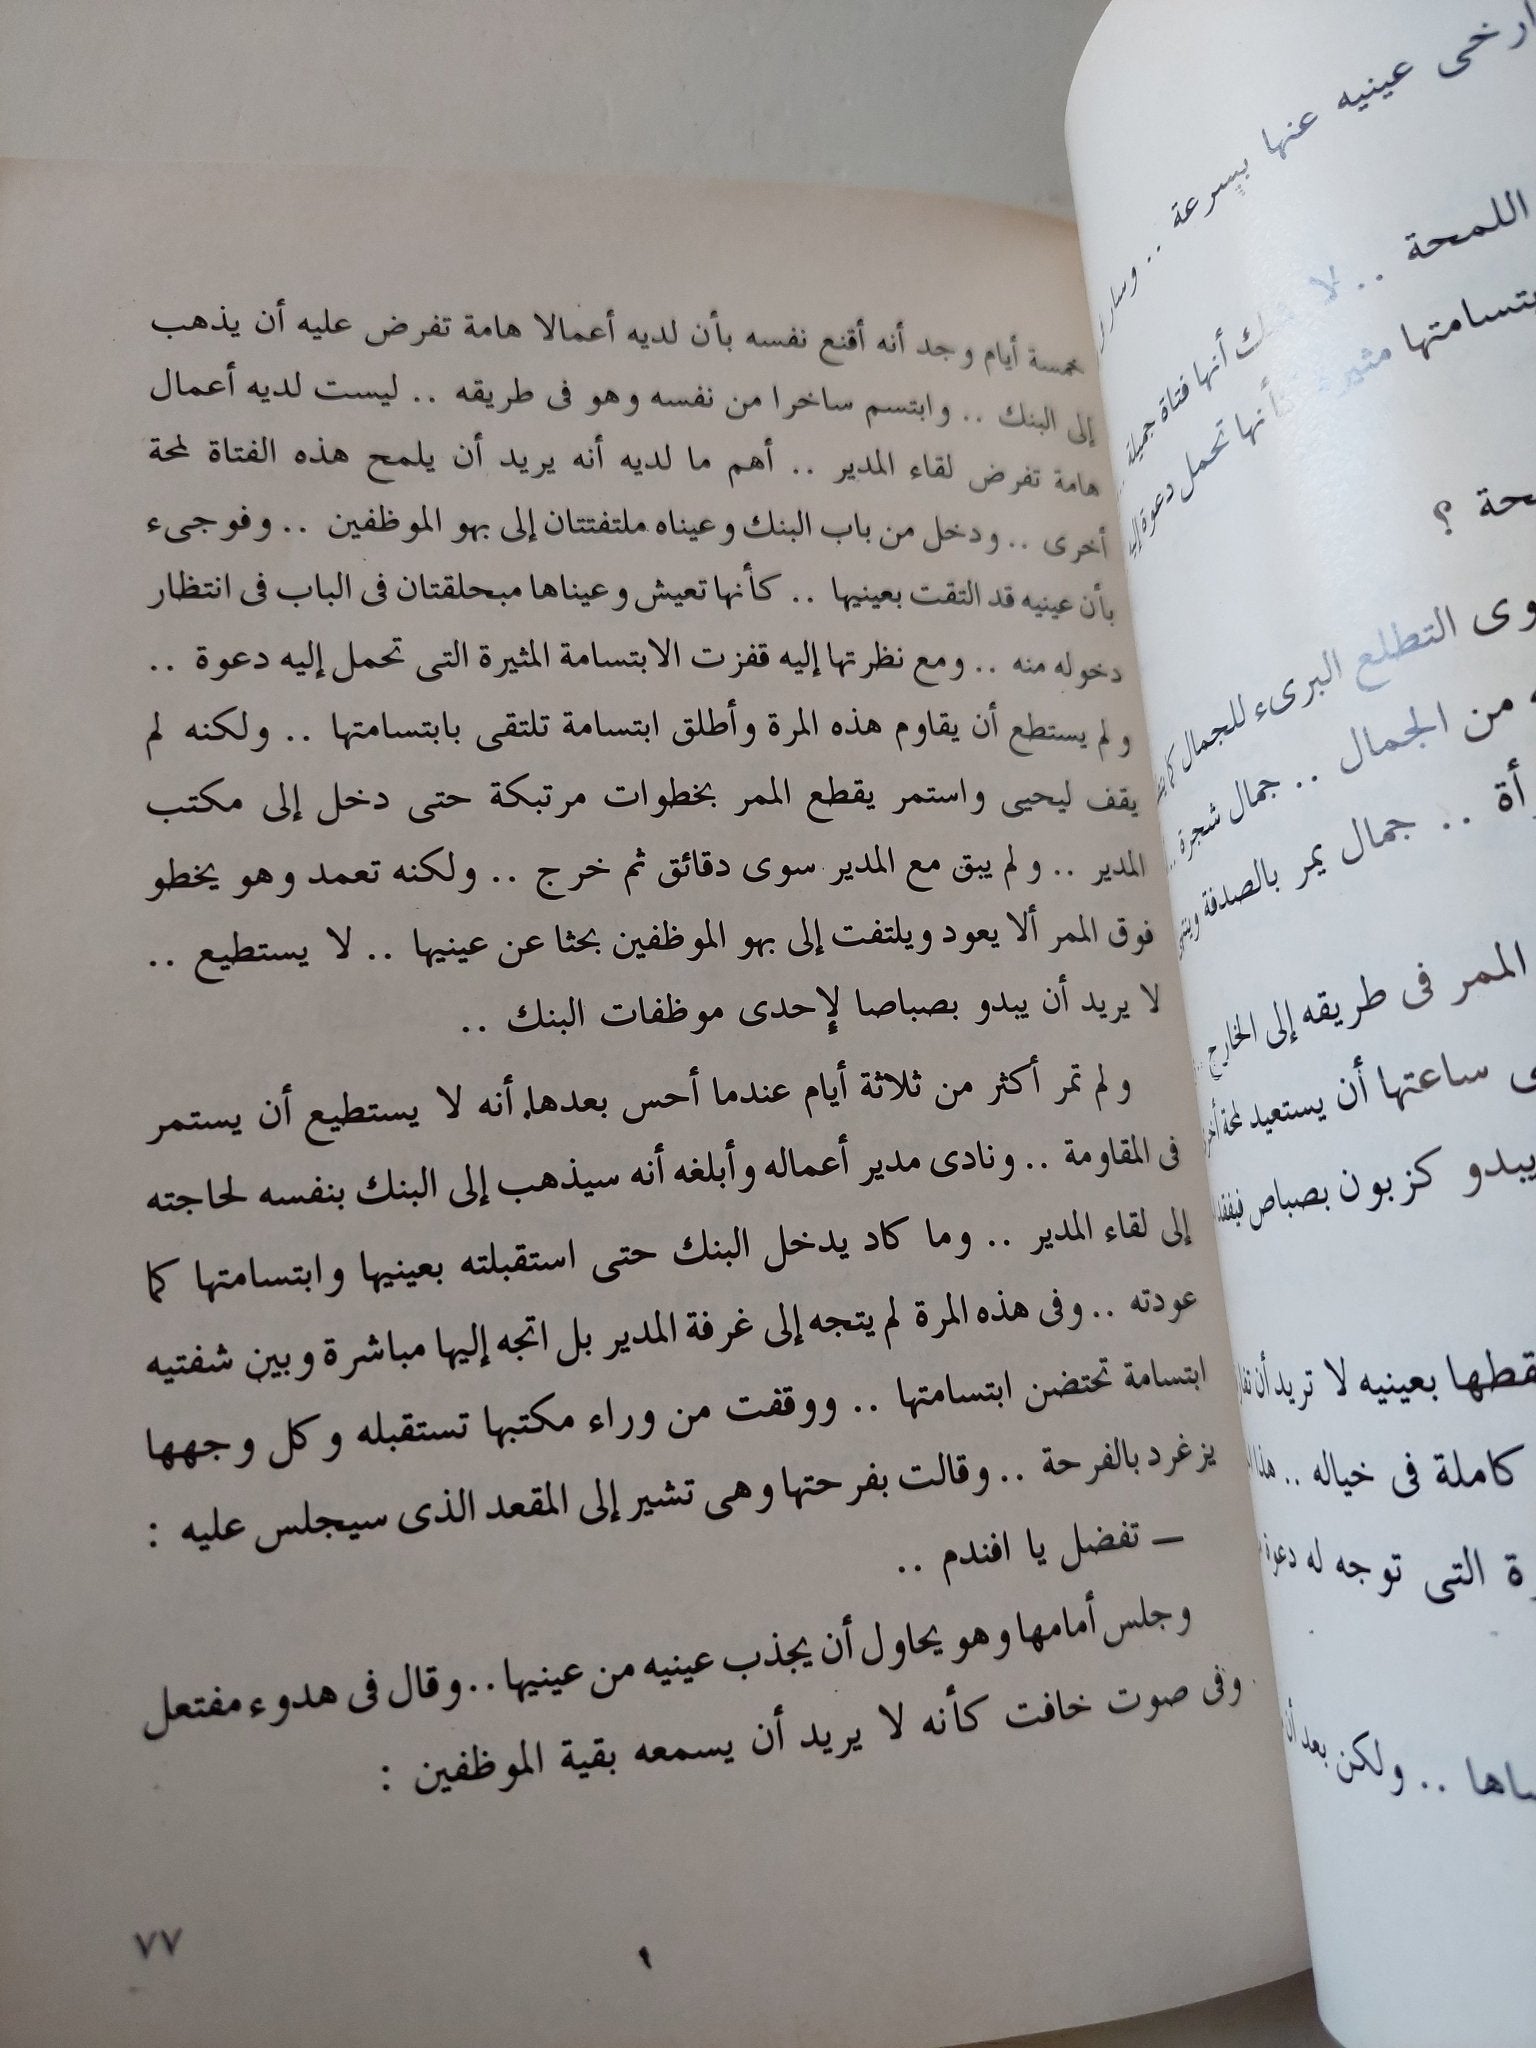 ارخى عينيه عنها بسرعة .. وسار
اللمحة .. لا شك أنها فتاة جميلة
بتسامتها مثيرة كأنها تحمل دعوة إليه
حة ؟
وى التطلع البرىء للجمال كما
من الجمال .. جمال شجرة ..
أة .. جمال يمر بالصدفة وينتهى
الممر فى طريقه إلى الخارج ..
ى ساعتها أن يستعيد لمحة أخرى
يبدو كزبون بصباص فيفقد
قطها بعينيه لا تريد أن
كاملة فى خياله .. هذا
رة التى توجه له دعوة
ساها .. ولكن بعد أن
خمسة أيام وجد أنه أقنع نفسه بأن لديه أعمالا هامة تفرض عليه أن يذهب
إلى البنك .. وابتسم ساخرا من نفسه وهو فى طريقه .. ليست لديه أعمال
هامة تفرض لقاء المدير .. أهم ما لديه أنه يريد أن يلمح هذه الفتاة لمحة
أخرى .. ودخل من باب البنك وعيناه ملتفتتان إلى بهو الموظفين .. وفوجىء
بأن عينيه قد التقت بعينيها .. كأنها تعيش وعيناها مبحلقتان فى الباب فى انتظار
دخوله منه .. ومع نظرتها إليه قفزت الابتسامة المثيرة التى تحمل إليه دعوة ..
ولم يستطع أن يقاوم هذه المرة وأطلق ابتسامة تلتقى بابتسامتها .. ولكنه لم
يقف ليحيى واستمر يقطع الممر بخطوات مرتبكة حتى دخل إلى مكتب
المدير .. ولم يبق مع المدير سوى دقائق ثم خرج .. ولكنه تعمد وهو يخطو
فوق الممر ألا يعود ويلتفت إلى بهو الموظفين بحثا عن عينيها .. لا يستطيع ..
لا يريد أن يبدو بصباصا لإحدى موظفات البنك ..
ولم تمر أكثر من ثلاثة أيام عندما أحس بعدها أنه لا يستطيع أن يستمر
فى المقاومة .. ونادى مدير أعماله وأبلغه أنه سيذهب إلى البنك بنفسه لحاجته
إلى لقاء المدير .. وما كاد يدخل البنك حتى استقبلته بعينيها وابتسامتها كما
عودته .. وفى هذه المرة لم يتجه إلى غرفة المدير بل اتجه إليها مباشرة وبين شفتيه
ابتسامة تحتضن ابتسامتها .. ووقفت من وراء مكتبها تستقبله وكل وجهها
يزغرد بالفرحة .. وقالت بفرحتها وهى تشير إلى المقعد الذى سيجلس عليه :
– تفضل يا افندم ..
وجلس أمامها وهو يحاول أن يجذب عينيه من عينيها .. وقال فى هدوء مفتعل
وفى صوت خافت كأنه لا يريد أن يسمعه بقية الموظفين :
٧٧